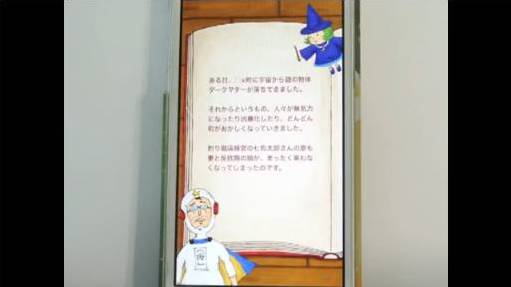 ある日、 町に宇宙から謎の物体
ダークマターが落ちてきました。
それからというもの、人々が無気力
になったり凶暴化したり、どんどん
町がおかしくなっていきました。
釣り堀店経営の七佐太郎さんの息も
妻と反抗期の娘が、まったく来わなく
なくなってしまったのです。